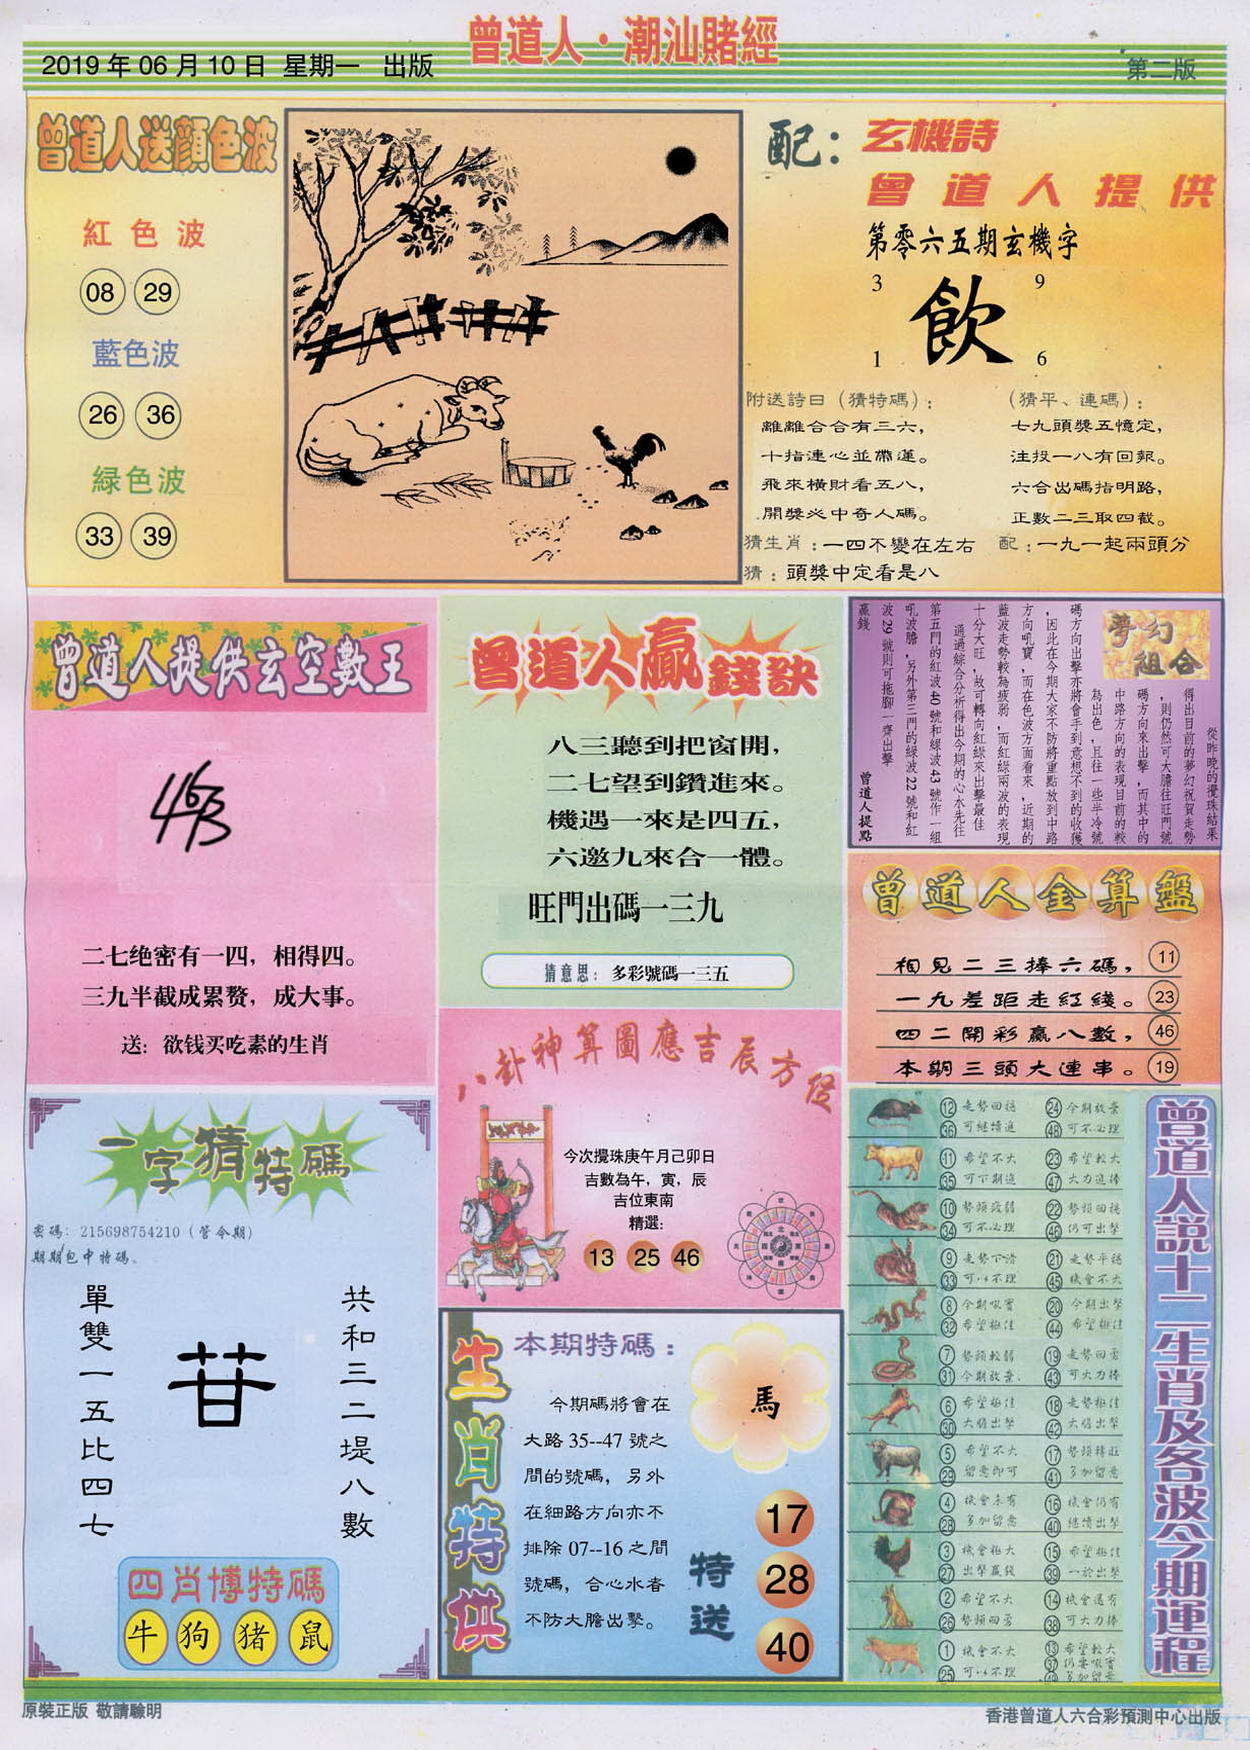 曾道人·潮汕賭經
2019年06月10日 星期一 出版
第二版
曾道人送顔色波
紅色波
08 29
藍色波
26 36
緑色波
33 39
配：玄機詩
曾道人提供
第零六五期玄機字
3 9
飲
1 6
附送詩曰（猜特碼）：
離離合合有三六，
十指連心並帶蓮。
飛來橫財看五八，
開獎必中奇人碼。
猜生肖：一四不變在左右
猜：頭獎中定看是八
（猜平、連碼）：
七九頭獎五憶定，
注投一八有回報。
六合出碼指明路，
正數二三取四截。
配：一九一起兩頭分
曾道人提供玄空數王
463
二七绝密有一四，相得四。
三九半截成累赘，成大事。
送：欲钱买吃素的生肖
曾道人贏錢訣
八三聽到把窗開，
二七望到鑽進來。
機遇一來是四五，
六邀九來合一體。
旺門出碼一三九
猜意思：多彩號碼一三五
夢幻組合
從昨晚的攪珠結果
得出目前的夢幻祝賀走勢
，則仍然可大膽往旺門號
碼方向來出擊，而其中的
中路方向的表現目前的較
為出色，且往一些半冷號
碼方向出擊亦將會手到意想不到的收獲
，因此在今期大家不防將重點放到中路
方向吼寶，而在色波方面看來，近期的
藍波走勢較為疲弱，而紅綠兩波的表現
十分大旺，故可轉向紅綠來出擊最佳
通過綜合分析得出今期的心水先往
第五門的紅波40號和綠波43號作一組
吼波膽，另外第三門的綠波22號和紅
波29號則可拖腳一齊出擊
贏錢
曾道人提點
曾道人金算盤
相見二三捧六碼， 11
一九差距走紅綫。 23
四二開彩贏八數， 46
本期三頭大連串。 19
一字猜特碼
密碼：215698754210（管今期）
期期包中特碼。
單雙一五比四七
苷
共和三二堤八數
四肖博特碼
牛 狗 猪 鼠
八卦神算圖應吉辰方位
今次攪珠庚午月己卯日
吉數為午，寅，辰
吉位東南
精選：
13 25 46
生肖特供
本期特碼：
今期碼將會在
大路35--47號之
間的號碼，另外
在細路方向亦不
排除07--16之間
號碼，合心水者
不防大膽出擊。
馬
特送
17
28
40
曾道人説十二生肖及各波今期運程
12 走勢回穩 24 今期放棄
36 可繼續進 48 可不必理
11 希望不大 23 希望較大
35 可下期進 47 大力追捧
10 勢頭疲弱 22 勢頭回穩
34 可不必理 46 仍可出擊
9 走勢下滑 21 走勢平穩
33 可以不理 45 機會不大
8 今期吼寶 20 今期出擊
32 希望極佳 44 希望極佳
7 勢頭較弱 19 走勢回勇
31 今期放棄. 43 可大力捧
6 希望極佳 18 走勢極佳
30 大膽出擊 42 大膽出擊
5 希望不大 17 勢頭轉旺
29 留意即可 41 多加留意
4 機會未有 16 機會仍有
28 多加留意 40 繼續出擊
3 機會極大 15 希望極佳
27 出擊贏錢 39 一於出擊
2 希望不大 14 機會還有
26 勢頭回勇 38 可大力捧
1 機會不大 13 希望較大
25 可以不理 37 仍要吼寶
49 多加留意
原裝正版 敬請驗明
香港曾道人六合彩預測中心出版